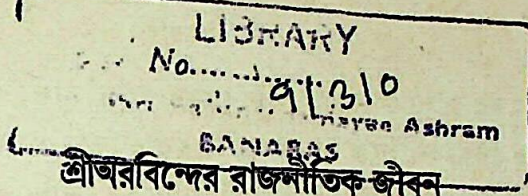 LIBRARY
No. 9/310
Ashram
BANARAS
শ্রীঅরবিন্দের রাজনীতিক জীবন